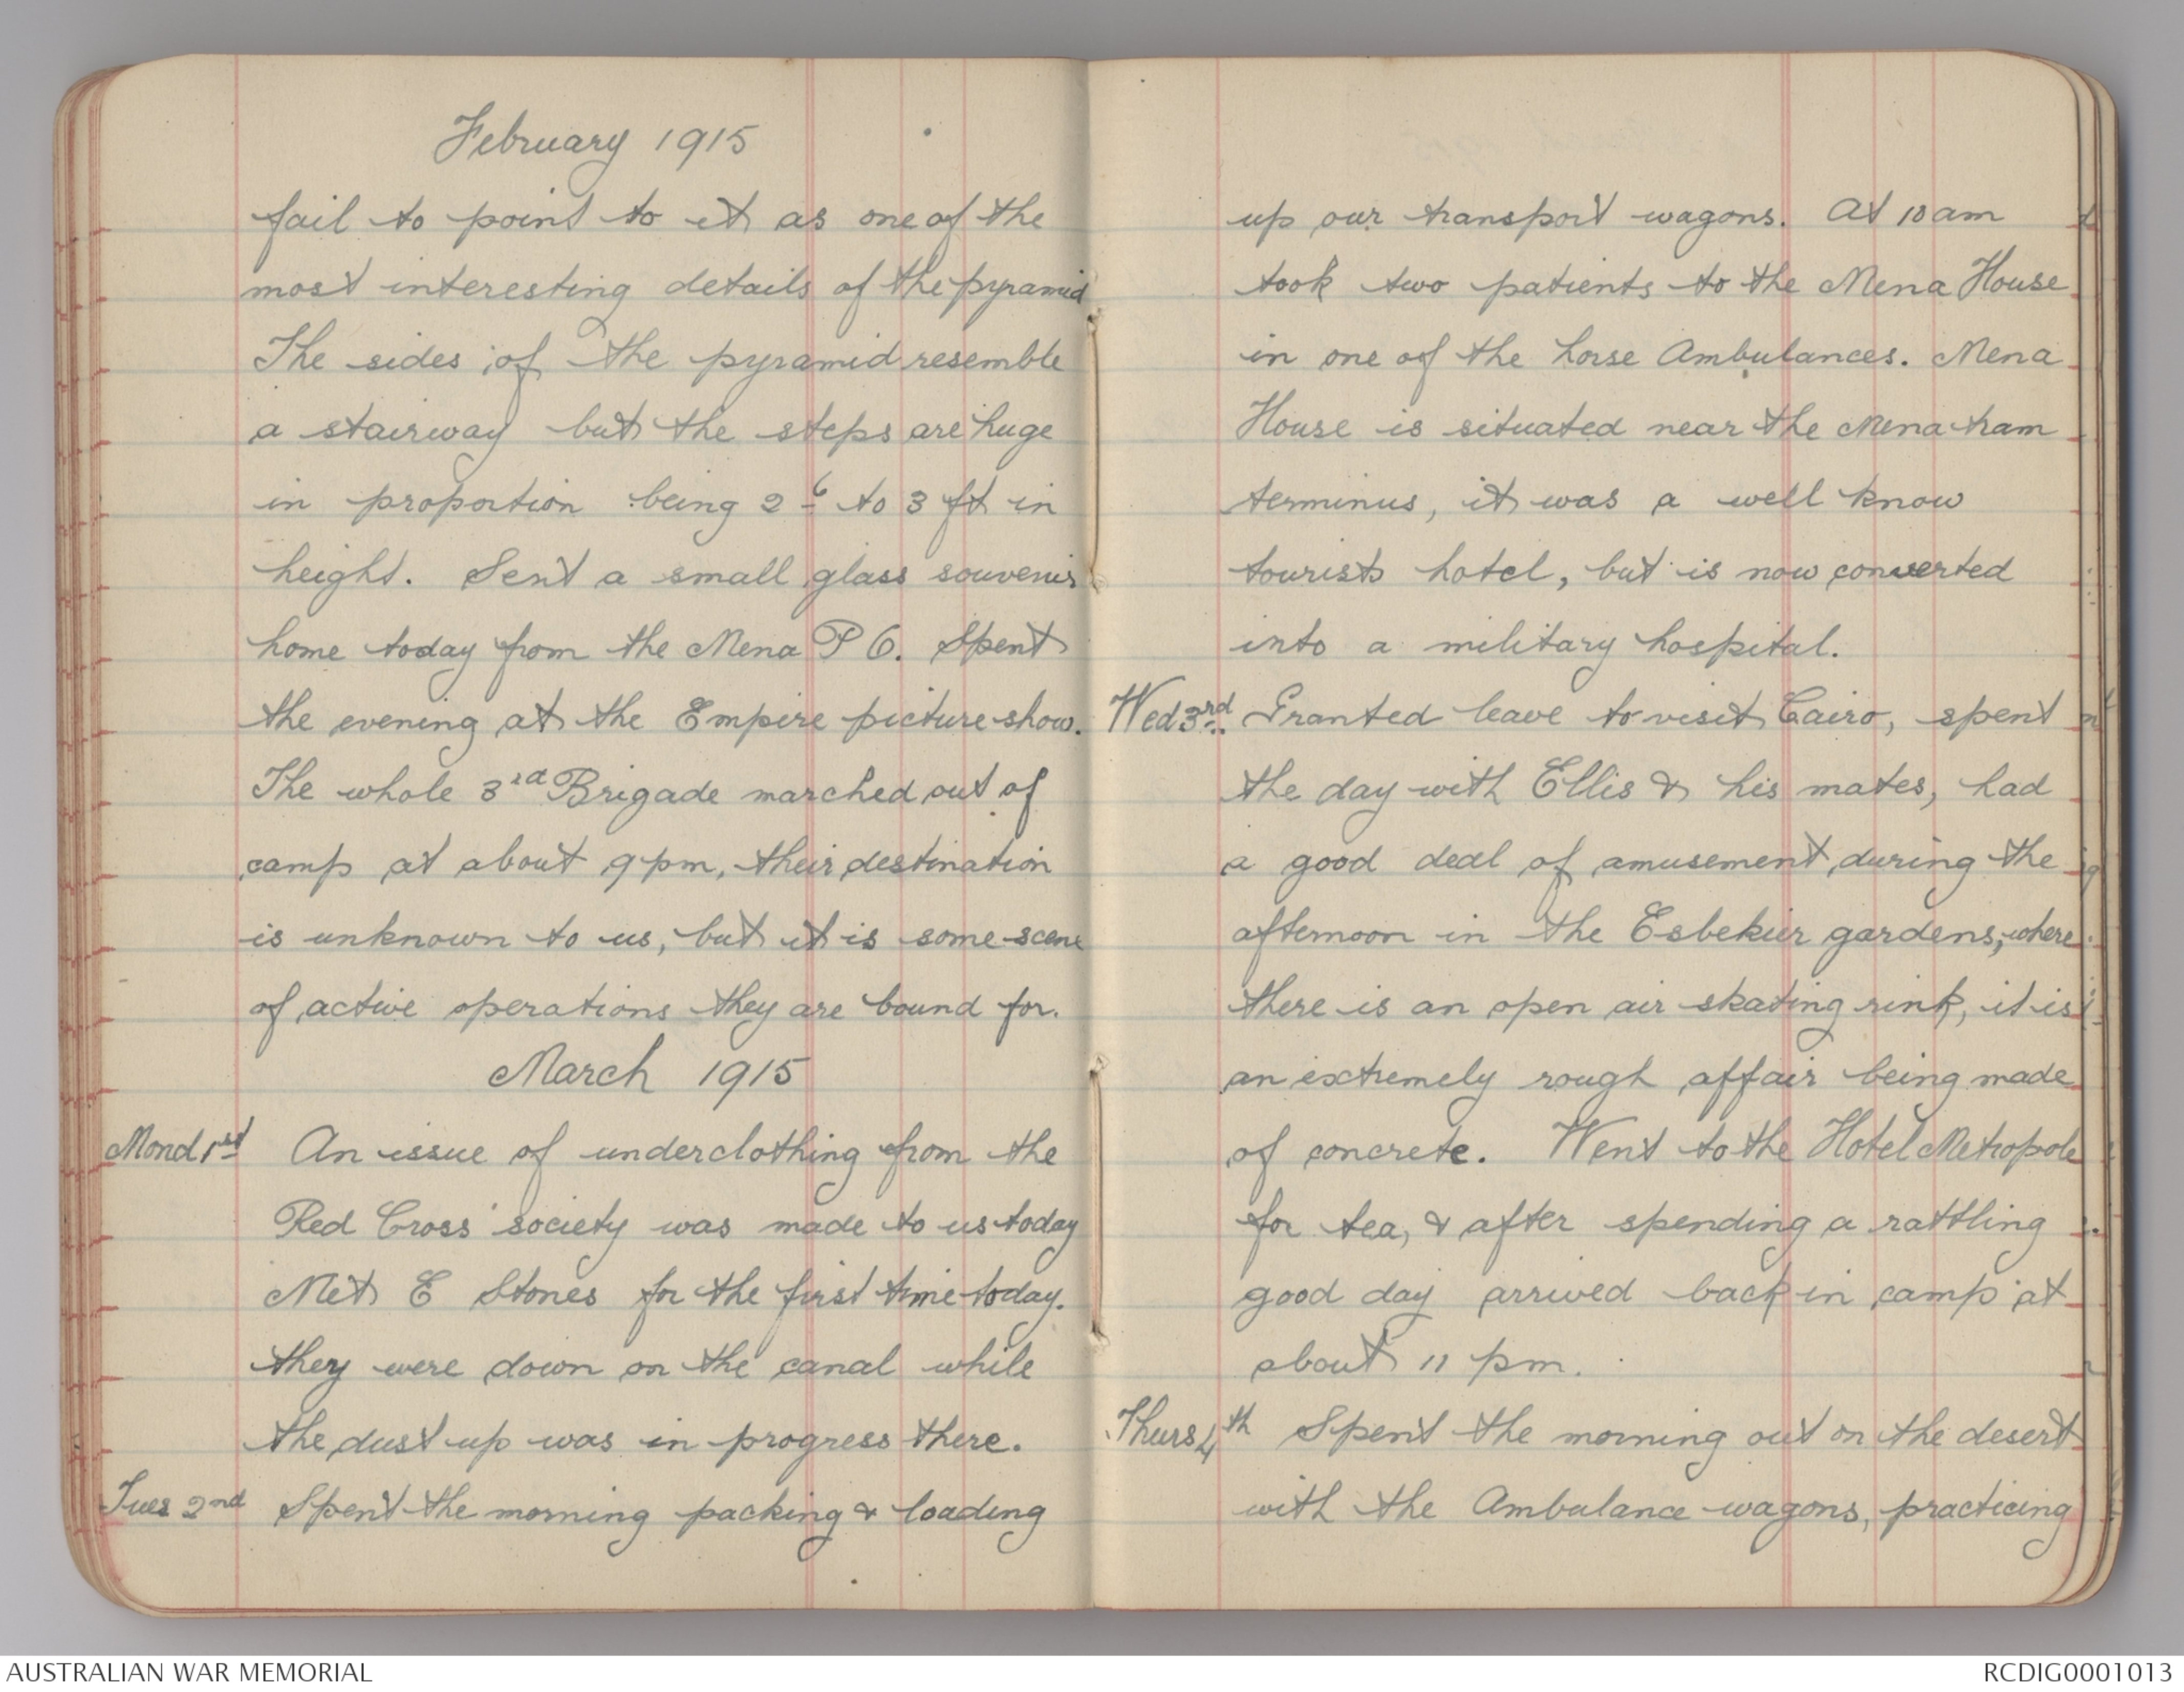 February 1915
fail to point to it as one of the
most interesting details of the pyramid
The sides of the pyramid resemble
a stairway but the steps are huge
in proportion being 2 6 to 3 ft in
height. Sent a small glass souvenir
home today from the Mena P O. Spent
the evening at the Empire picture show.
The whole 3rd Brigade marched out of
camp at about 9 pm, their destination
is unknown to us, but it is some scene
of active operations they are bound for.
March 1915
Mond 1st An issue of underclothing from the
Red Cross society was made to us today
Met E Stones for the first time today.
they were down on the canal while
the dust up was in progress there.
Tues 2nd Spent the morning packing & loading
up our transport wagons. At 10 am
took two patients to the Mena House
in one of the horse Ambulances. Mena
House is situated near the Mena tram
terminus, it was a well know
tourists hotel, but is now converted
into a military hospital.
Wed 3rd. Granted leave to visit Cairo, spent
the day with Ellis & his mates, had
a good deal of amusement, during the
afternoon in the Esbekier gardens, where
there is an open air skating rink, it is
an extremely rough affair being made
of concrete. Went to the Hotel Metropole
for tea, & after spending a rattling
good day arrived back in camp at
about 11 pm.
Thurs 4th Spent the morning out on the desert
with the Ambulance wagons, practicing
AUSTRALIAN WAR MEMORIAL
RCDIG0001013